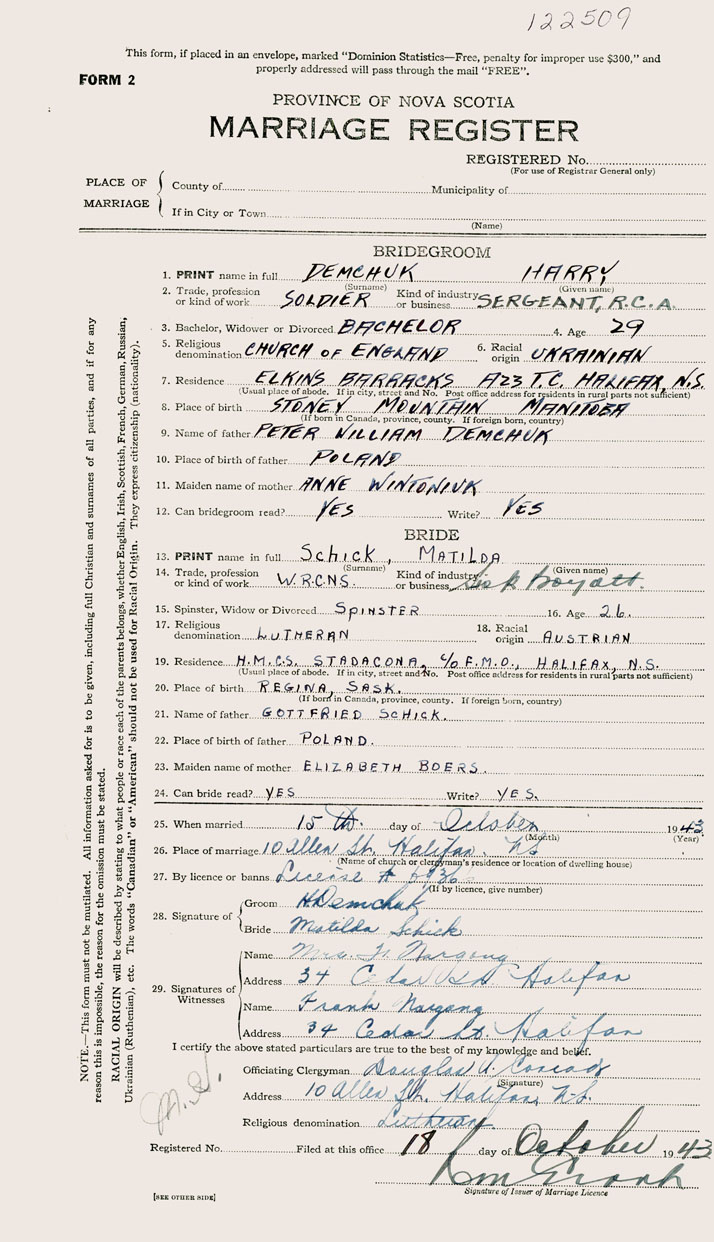 122509
This form, if placed in an envelope, marked "Dominion Statistics—Free, penalty for improper use $300," and
properly addressed will pass through the mail "FREE".
FORM 2
PROVINCE OF NOVA SCOTIA
MARRIAGE REGISTER
REGISTERED No.
(For use of Registrar General only)
PLACE OF MARRIAGE
County of Municipality of
If in City or Town
(Name)
BRIDEGROOM
1. PRINT name in full DEMCHUK HARRY
(Surname) (Given name)
2. Trade, profession or kind of work SOLDIER Kind of industry or business SERGEANT, R.C.A.
3. Bachelor, Widower or Divorced BACHELOR 4. Age 29
5. Religious denomination CHURCH OF ENGLAND 6. Racial origin UKRAINIAN
7. Residence ELKINS BARRACKS A23 T.C. HALIFAX, N.S.
(Usual place of abode. If in city, street and No. Post office address for residents in rural parts not sufficient)
8. Place of birth STONEY MOUNTAIN MANITOBA
(If born in Canada, province, county. If foreign born, country)
9. Name of father PETER WILLIAM DEMCHUK
10. Place of birth of father POLAND
11. Maiden name of mother ANNE WINTONIUK
12. Can bridegroom read? YES Write? YES
BRIDE
13. PRINT name in full SCHICK, MATILDA
(Surname) (Given name)
14. Trade, profession or kind of work W.R.C.N.S. Kind of industry or business
15. Spinster, Widow or Divorced SPINSTER 16. Age 26.
17. Religious denomination LUTHERAN 18. Racial origin AUSTRIAN
19. Residence H.M.C.S. STADACONA, c/o F.M.O., HALIFAX, N.S.
(Usual place of abode. If in city, street and No. Post office address for residents in rural parts not sufficient)
20. Place of birth REGINA, SASK.
(If born in Canada, province, county. If foreign born, country)
21. Name of father GOTTFRIED SCHICK.
22. Place of birth of father POLAND.
23. Maiden name of mother ELIZABETH BOERS.
24. Can bride read? YES Write? YES.
25. When married 15th day of October 1943
(Month) (Year)
26. Place of marriage 10 Allen St. Halifax. N.S.
(Name of church or clergyman's residence or location of dwelling house)
27. By licence or banns License #
(If by licence, give number)
28. Signature of
Groom H Demchuk
Bride Matilda Schick
29. Signatures of Witnesses
Name Mrs. F. Nargang
Address 34 Cedar St. Halifax
Name Frank Nargang
Address 34 Cedar St. Halifax
I certify the above stated particulars are true to the best of my knowledge and belief.
Officiating Clergyman Douglas A. Conrad
(Signature)
Address 10 Allen St. Halifax, N.S.
Religious denomination Lutheran
Registered No. Filed at this office 18 day of October 1943
Signature of Issuer of Marriage Licence
[SEE OTHER SIDE]
NOTE.—This form must not be mutilated. All information asked for is to be given, including full Christian and surnames of all parties, and if for any
reason this is impossible, the reason for the omission must be stated.
RACIAL ORIGIN will be described by stating to what people or race each of the parents belongs, whether English, Irish, Scottish, French, German, Russian,
Ukrainian (Ruthenian), etc. The words "Canadian" or "American" should not be used for Racial Origin. They express citizenship (nationality).